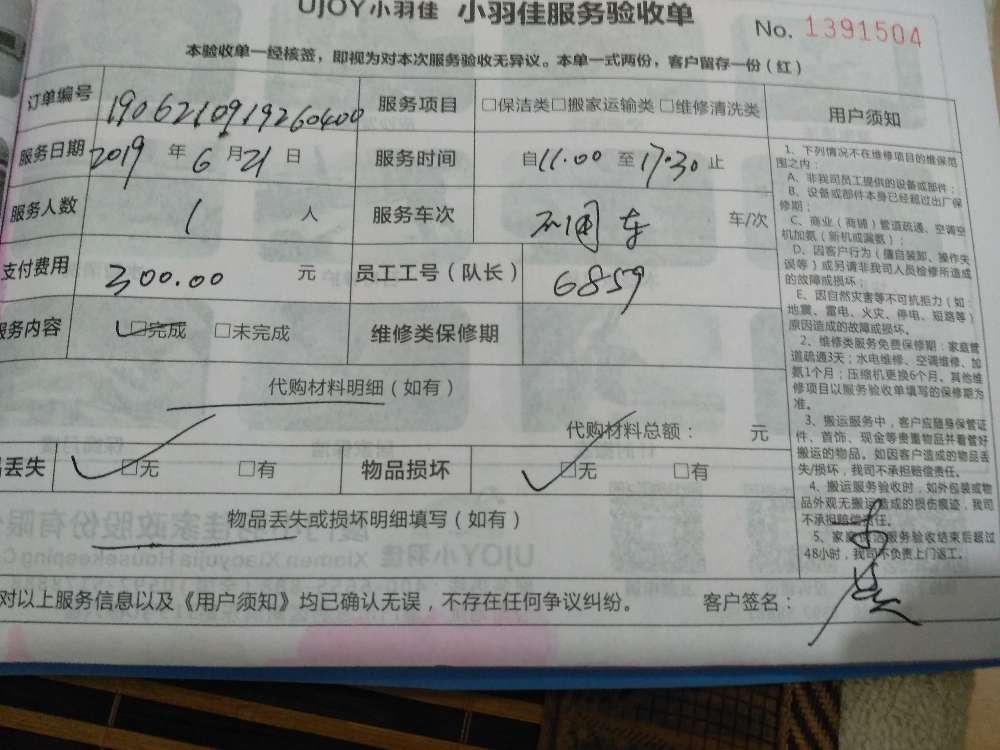 UJOY小羽佳 小羽佳服务验收单
No. 1391504
本验收单一经核签，即视为对本次服务验收无异议。本单一式两份，客户留存一份（红）
订单编号 1906210919260400 服务项目 □保洁类□搬家运输类□维修清洗类
服务日期 2019 年 6 月 21 日 服务时间 自11:00 至17:30 止
服务人数 1 人 服务车次 不用车 车/次
支付费用 300.00 元 员工工号（队长） 6859
服务内容 □完成 □未完成 维修类保修期
代购材料明细（如有）
代购材料总额： 元
丢失 □无 □有 物品损坏 □无 □有
物品丢失或损坏明细填写（如有）
对以上服务信息以及《用户须知》均已确认无误，不存在任何争议纠纷。 客户签名：
用户须知
1、下列情况不在维修项目的维保范
围之内：
A、非我司员工提供的设备或部件；
B、设备或部件本身已经超过出厂保
修期；
C、商业（商铺）管道疏通、空调空
机加氨（新机或漏氨）；
D、因客户行为（擅自装卸、操作失
误等）或另请非我司人员检修所造成
的故障或损坏；
E、因自然灾害等不可抗拒力（如：
地震、雷电、火灾、停电、短路等）
原因造成的故障或损坏。
2、维修类服务免费保修期：家庭管
道疏通3天；水电维修、空调维修、加
氨1个月；压缩机更换6个月。其他维
修项目以服务验收单填写的保修期为
准。
3、搬运服务中，客户应随身保管证
件、首饰、现金等贵重物品并看管好
搬运的物品。如因客户造成的物品丢
失/损坏，我司不承担赔偿责任。
4、搬运服务验收时，如外包装或物
品外观无搬运造成的损伤痕迹，我司
不承担赔偿责任。
5、家庭保洁服务验收结束后超过
48小时，我司不负责上门返工。